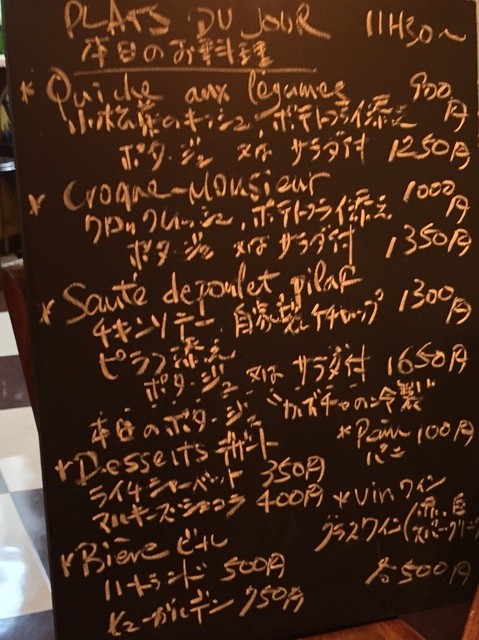 PLATS DU JOUR 11H30〜
本日のお料理
* Quiche aux légumes 900円
小松菜のキッシュ、ポテトフライ添え
ポタージュ 又は サラダ付 1250円
* Croque-Monsieur 1000円
クロックムッシュ、ポテトフライ添え
ポタージュ 又は サラダ付 1350円
* Sauté de poulet pilaf 1300円
チキンソテー 自家製ケチャップ
ピラフ添え
ポタージュ 又は サラダ付 1650円
本日のポタージュ "カボチャの冷製"
* Pain 100円
パン
* Desserts デザート
ライチシャーベット 350円
マルキーズショコラ 400円
* Vin ワイン
グラスワイン(赤、白
スパークリング
各500円
* Bière ビール
ハートランド 500円
ヒューガルデン 750円